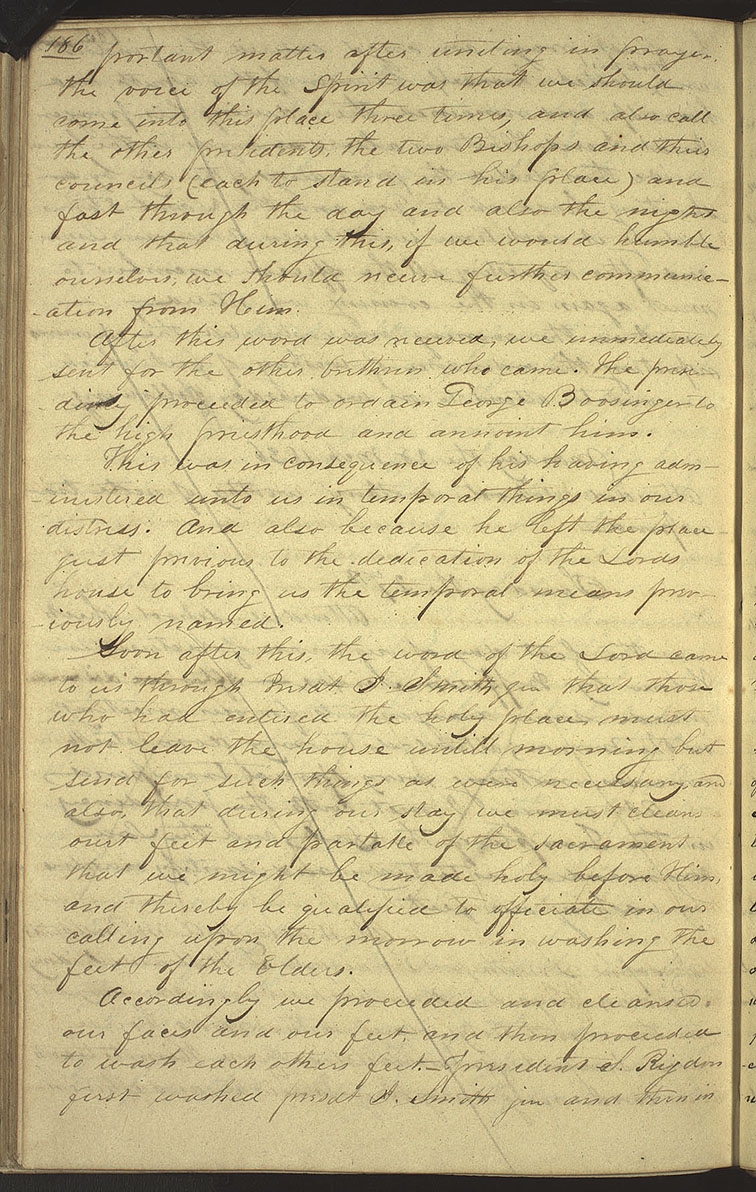 186
portant matter after uniting in prayer.
the voice of the Spirit was that we should
come into this place three times, and also call
the other presidents, the two Bishops and their
councils (each to stand in his place) and
fast through the day and also the night
and that during this, if we would humble
ourselves, we should receive further communic-
-ation from Him.
After this word was received, we immediately
sent for the other brethren who came. The presi-
-dency proceeded to ordain George Boosinger to
the high priesthood and annoint him.
This was in consequence of his having adm-
-inistered unto us in temporal things in our
distress. And also because he left the place
just previous to the dedication of the Lords
house to bring us the temporal means prev-
-iously named.
Soon after this, the word of the Lord came
to us through Presdt J. Smith jun that those
who had entered the holy place must
not leave the house untill morning but
send for such things as were necessary, and
also, that during our stay we must cleans
ourt feet and partake of the sacrament
that we might be made holy before Him,
and thereby be qualified to officiate in our
calling upon the morrow in washing the
feet of the Elders.
Accordingly we proceeded and cleansed
our faces and our feet, and then proceeded
to wash each others feet.—President S. Rigdon
first washed presdt J. Smith jun and then in